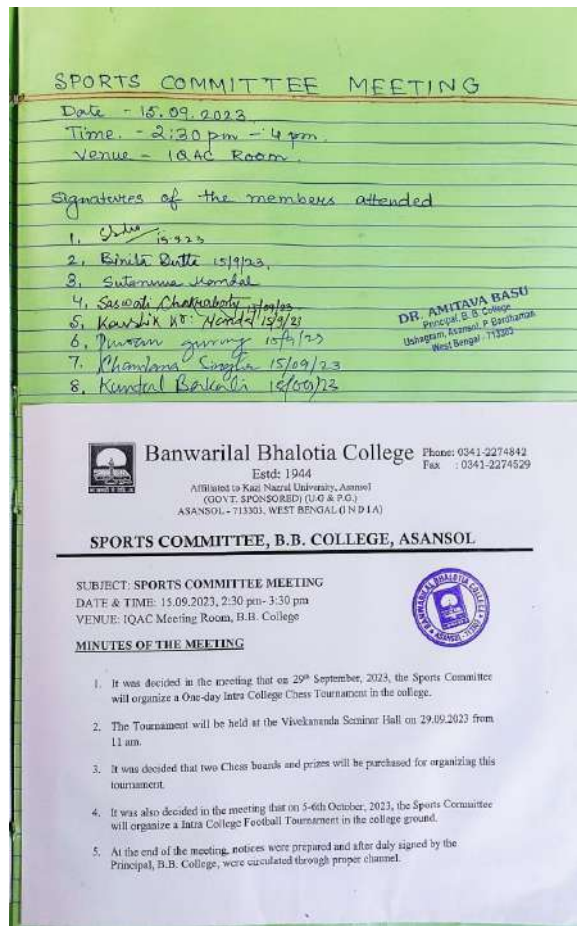 SPORTS COMMITTEE MEETING
Date - 15.09.2023
Time. - 2:30 pm - 4 pm.
Venue - IQAC Room.
Signatures of the members attended
1. 15-9-23
2. Binita Dutta 15/9/23.
3. Sutanuka Mondal
4. Saswati Chakraborty 15/09/23
5. Kaushik Kr. Mandal 15/9/23
6. gurung 15/9/23
7. Chandana Singha 15/09/23
8. Kuntal 15/09/23
DR. AMITAVA BASU
Principal, B. B. College
Ushagram, Asansol, P Bardhaman
West Bengal - 713303
Banwarilal Bhalotia College
Phone: 0341-2274842
Fax : 0341-2274529
Estd: 1944
Affiliated to Kazi Nazrul University, Asansol
(GOVT. SPONSORED) (U.G & P.G.)
ASANSOL - 713303, WEST BENGAL (I N D I A)
SPORTS COMMITTEE, B.B. COLLEGE, ASANSOL
SUBJECT: SPORTS COMMITTEE MEETING
DATE & TIME: 15.09.2023, 2:30 pm- 3:30 pm
VENUE: IQAC Meeting Room, B.B. College
BANWARILAL BHALOTIA COLLEGE
ASANSOL
MINUTES OF THE MEETING
1. It was decided in the meeting that on 29th September, 2023, the Sports Committee
will organize a One-day Intra College Chess Tournament in the college.
2. The Tournament will be held at the Vivekananda Seminar Hall on 29.09.2023 from
11 am.
3. It was decided that two Chess boards and prizes will be purchased for organizing this
tournament.
4. It was also decided in the meeting that on 5-6th October, 2023, the Sports Committee
will organize a Intra College Football Tournament in the college ground.
5. At the end of the meeting, notices were prepared and after duly signed by the
Principal, B.B. College, were circulated through proper channel.